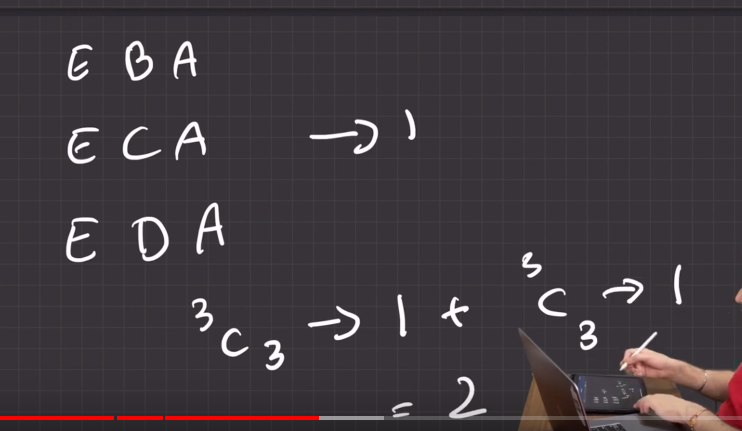 E B A
E C A → 1
E D A
³C₃ → 1 + ³C₃ → 1
= 2